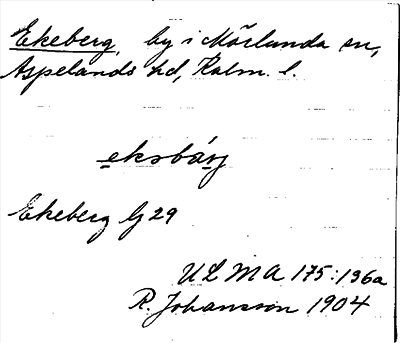 Ekeberg, by i Mörlunda sn,
Aspelands hd, Kalm. l.
eksbárj
Ekeberg Lj 29
ULMA 175:136a
R. Johansson 1904